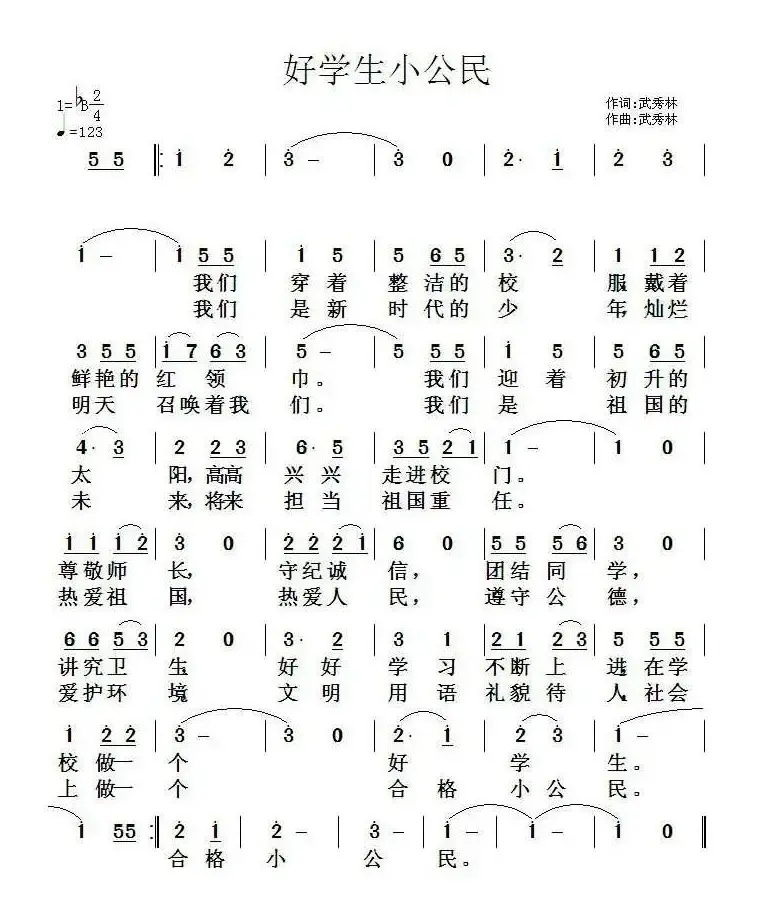 好学生小公民
1=♭B 2/4
♩=123
作词:武秀林
作曲:武秀林
5 5 ‖: i̇ 2̇ | 3̇ – | 3̇ 0 | 2̇· i̇ | 2̇ 3̇ |
i̇ – | i̇ 5 5 | i̇ 5 | 5 6 5 | 3· 2 | 1 1 2 |
我们 穿着 整洁的校 服,戴着
我们 是新 时代的少 年,灿烂
3 5 5 | i̇ 7 6 3 | 5 – | 5 5 5 | i̇ 5 | 5 6 5 |
鲜艳的红领 巾。 我们 迎着 初升的
明天 召唤着我 们。 我们 是 祖国的
4· 3 | 2 2 3 | 6· 5 | 3 5 2 1 | 1 – | 1 0 |
太 阳,高高 兴兴 走进校 门。
未 来,将来 担当 祖国重 任。
i̇ i̇ i̇ 2̇ | 3̇ 0 | 2̇ 2̇ 2̇ i̇ | 6 0 | 5 5 5 6 | 3 0 |
尊敬师 长, 守纪诚 信, 团结同 学,
热爱祖 国, 热爱人 民, 遵守公 德,
6 6 5 3 | 2 0 | 3· 2 | 3 1 | 2 1 2 3 | 5 5 5 |
讲究卫 生, 好好 学习 不断上 进,在学
爱护环 境, 文明 用语 礼貌待 人,社会
i̇ 2̇ 2̇ | 3̇ – | 3̇ 0 | 2̇· i̇ | 2̇ 3̇ | i̇ – |
校做一 个 好 学 生。
上做一 个 合格 小公 民。
i̇ 55 :‖ 2̇ i̇ | 2̇ – | 3̇ – | i̇ – | i̇ – | i̇ 0 ‖
合格 小 公 民。